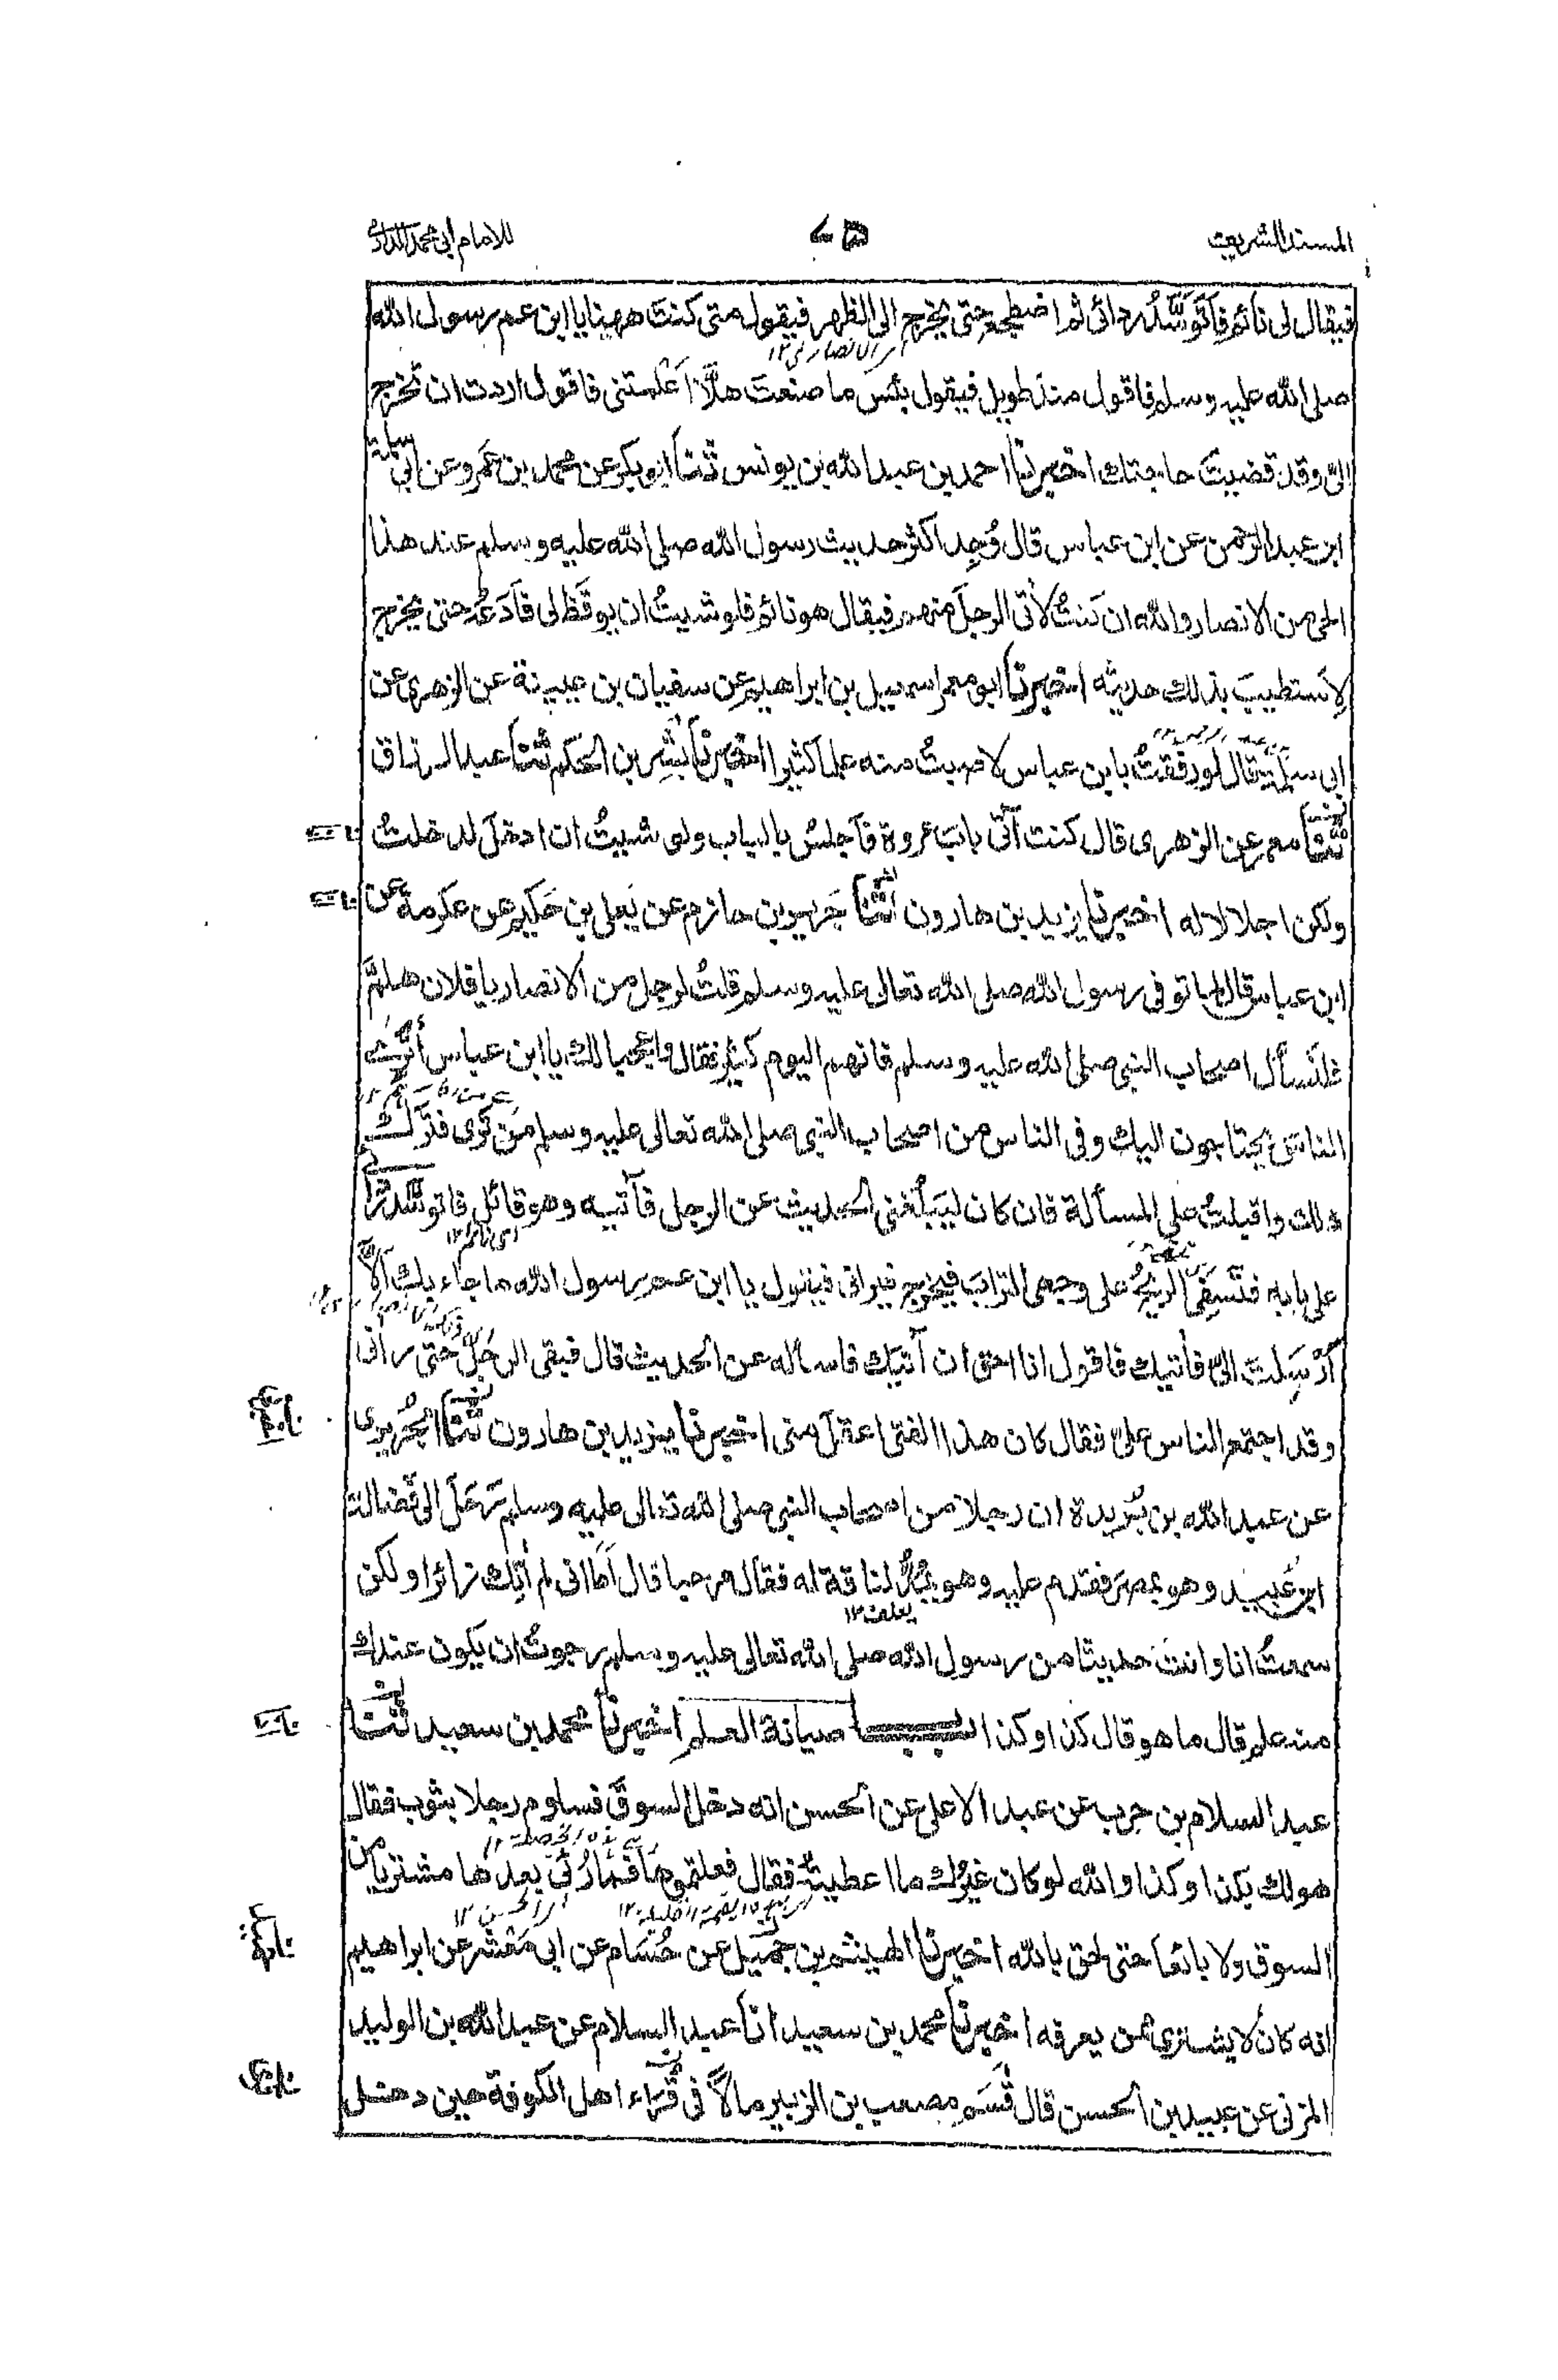 المسند الشريف ٧٥ للامام ابي محمد الدارمي
فيقال لى نائم فأتوسّد ردائى ثم اضطجع حتى يخرج الى الظهر فيقول متى كنت ههنا يا ابن عم رسول الله
اى الانصارى ١٢
صلى الله عليه وسلم فاقول منذ طويل فيقول بئس ما صنعت هلّا اعلمتنى فاقول اردت ان تخرج
الىّ وقد قضيت حاجتك اخبرنا احمد بن عبد الله بن يونس ثنا ابو بكر عن محمد بن عمرو عن ابى سلمة
ابن عبد الرحمن عن ابن عباس قال وُجِد اكثر حديث رسول الله صلى الله عليه وسلم عند هذا
الحى من الانصار والله ان كنتُ لآتى الرجلَ منهم فيقال هو نائم فلو شيتُ ان يوقَظ لى فأدَعُه حتى يخرج
لاستطيبَ بذلك حديثه اخبرنا ابو معمر اسمعيل بن ابراهيم عن سفيان بن عيينة عن الزهرى عن
ابى سلمة قال لو رفقتُ بابن عباس لاصبتُ منه علما كثيرا اخبرنا بشر بن الحكم ثنا عبد الرزاق
ثنا معمر عن الزهرى قال كنت آتى بابَ عروة فأجلسُ بالباب ولو شيتُ ان ادخلَ لدخلتُ
ولكن اجلالا له اخبرنا يزيد بن هارون انا جرير بن حازم عن يَعلى بن حَكيم عن عكرمة عن
ابن عباس قال لما توفى رسول الله صلى الله تعالى عليه وسلم قلتُ لرجل من الانصار يا فلان هلمّ
فلنسأل اصحاب النبى صلى الله عليه وسلم فانهم اليوم كثير فقال واعجبا لك يا ابن عباس أترى
الناس يحتاجون اليك وفى الناس من اصحاب النبى صلى الله تعالى عليه وسلم من ترى فترك
ذلك واقبلتُ على المسألة فان كان ليَبلُغنى الحديث عن الرجل فآتيه وهو قائل فاتوسّد ردائى
اى نائم ١٢
على بابه فتَسفِى الريحُ على وجهى الترابَ فيخرج فيرانى فيقول يا ابن عم رسول الله ما جاء بك ألا
أرْسَلتَ الىّ فأتيك فاقول انا احق ان آتيك فاسأله عن الحديث قال فبقى الرجلُ حتى رآنى
وقد اجتمع الناس علىّ فقال كان هذا الفتى اعقلَ منى اخبرنا يزيد بن هارون ثنا الجُرَيرى
عن عبد الله بن بُريدة ان رجلا من اصحاب النبى صلى الله تعالى عليه وسلم رَحَلَ الى فَضالة
ابن عُبيد وهو بمصر فقدم عليه وهو يمُدُّ لناقة له فقال مرحبا قال أما انى لم آتِك زائرا ولكن
يعلف ١٢
سمعتُ انا وانتَ حديثا من رسول الله صلى الله تعالى عليه وسلم رجوتُ ان يكون عندك
منه علم قال ما هو قال كذا وكذا باب صيانة العلم اخبرنا محمد بن سعيد ثنا
عبد السلام بن حرب عن عبد الاعلى عن الحسن انه دخل السوق فساوم رجلا بثوب فقال
هو لك بكذا وكذا والله لو كان غيرُك ما اعطيتُه فقال فعلتموها فما رُئى بعدها مشتريا من
اى الحسن ١٢
السوق ولا بائعا حتى لحق بالله اخبرنا الهيثم بن جميل عن حُسَام عن ابى مَعْشَر عن ابراهيم
انه كان لا يشترى ممن يعرفه اخبرنا محمد بن سعيد انا عبد السلام عن عبد الله بن الوليد
المزنى عن عبيد بن الحسن قال قَسَم مصعب بن الزبير مالاً فى قُرّاء اهل الكوفة حين دخل